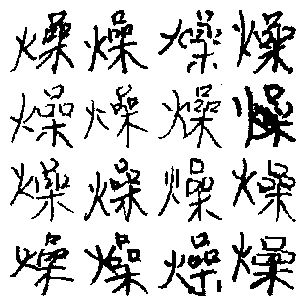 燥燥燥燥
燥燥燥燥
燥燥燥燥
燥燥燥燥